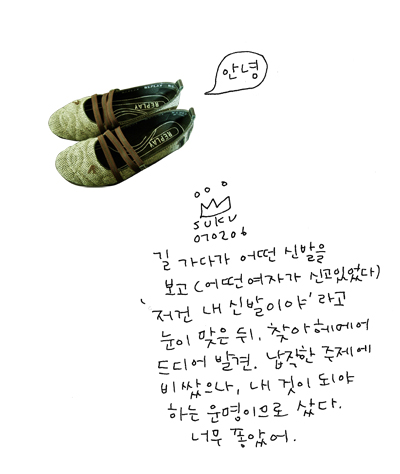 안녕
REPLAY
REPLAY
suku
070206
길 가다가 어떤 신발을
보고 (어떤여자가 신고있었다)
'저건 내 신발이야' 라고
눈이 맞은 뒤, 찾아헤메어
드디어 발견. 납작한 주제에
비쌌으나, 내 것이 되야
하는 운명이므로 샀다.
너무 퐁았어.